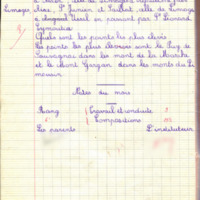 Limoges
Aixe, St Junien et Saillat, celle de Limoges
à Angoul en passant par St Léonard,
Eymoutiers
Quels sont les points les plus élevés
Les points les plus élevés sont le Puy de
dans les monts de la Marche
et le Mont Gargan dans les monts du Li
mousin
Notes du mois
Rang Travail et conduite
Compositions
Les parents L'instituteur